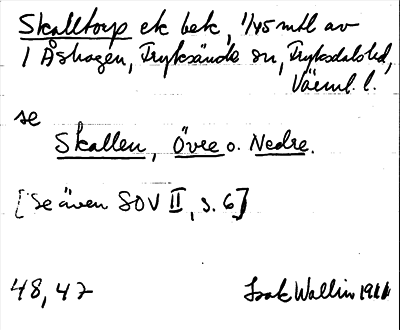 Skalltorp ek bek, 1/45 mtl av
1 Åshagen, Fryksände sn, Fryksdalshd,
Värml. l.
se
Skallen, Övre o. Nedre.
[Se även SOV II, s. 6]
48, 47
Isak Wallin 19